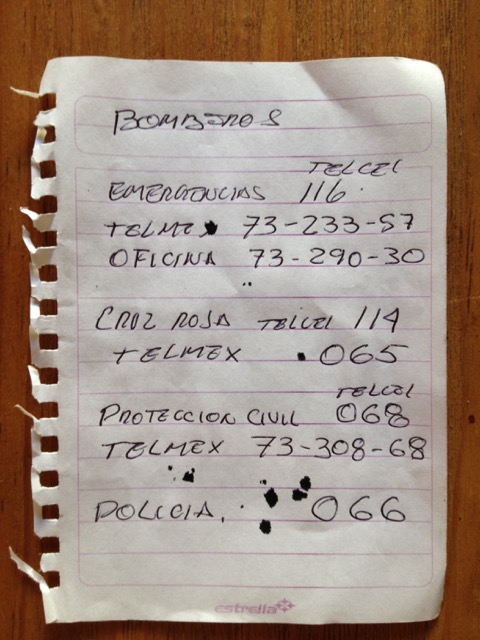 BOMBEROS
TELCEL
EMERGENCIAS 116
TELMEX 73-233-57
OFICINA 73-290-30
CRUZ ROJA TELCEL 114
TELMEX 065
TELCEL
PROTECCION CIVIL 068
TELMEX 73-308-68
POLICIA. 066
estrella